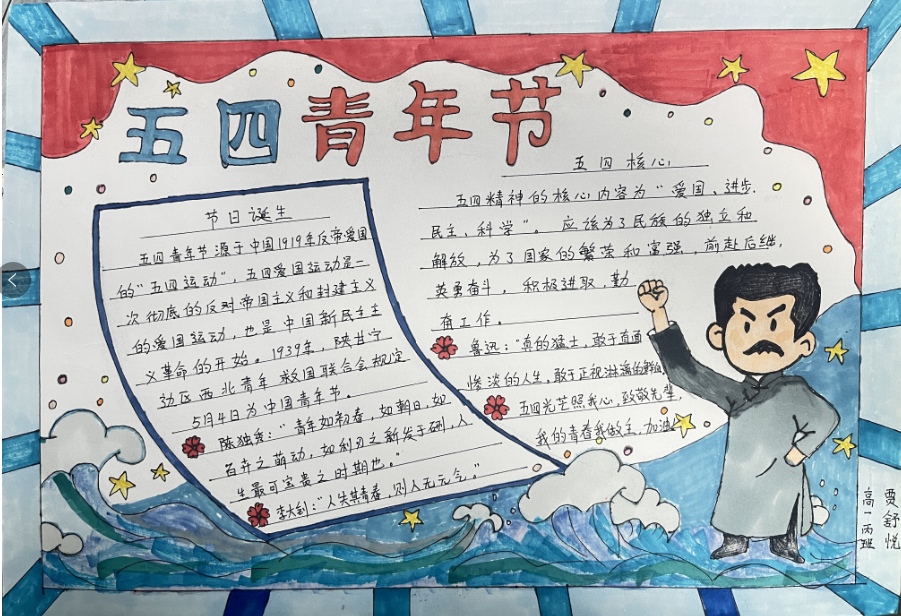 五四青年节
节日诞生
五四青年节源于中国1919年反帝爱国
的“五四运动”，五四爱国运动是一
次彻底的反对帝国主义和封建主义
的爱国运动，也是中国新民主主
义革命的开始。1939年，陕甘宁
边区西北青年救国联合会规定
5月4日为中国青年节。
陈独秀：“青年如初春，如朝日，如
百卉之萌动，如利刃之新发于硎，人
生最可宝贵之时期也。”
李大钊：“人失其青春，则人无元气。”
五四核心
五四精神的核心内容为“爱国、进步、
民主、科学”。应该为了民族的独立和
解放，为了国家的繁荣和富强，前赴后继，
英勇奋斗，积极进取，勤
奋工作。
鲁迅：“真的猛士，敢于直面
惨淡的人生，敢于正视淋漓的鲜血
五四光芒照我心，致敬先辈，
我的青春我做主，加油
高一丙班
贾舒悦